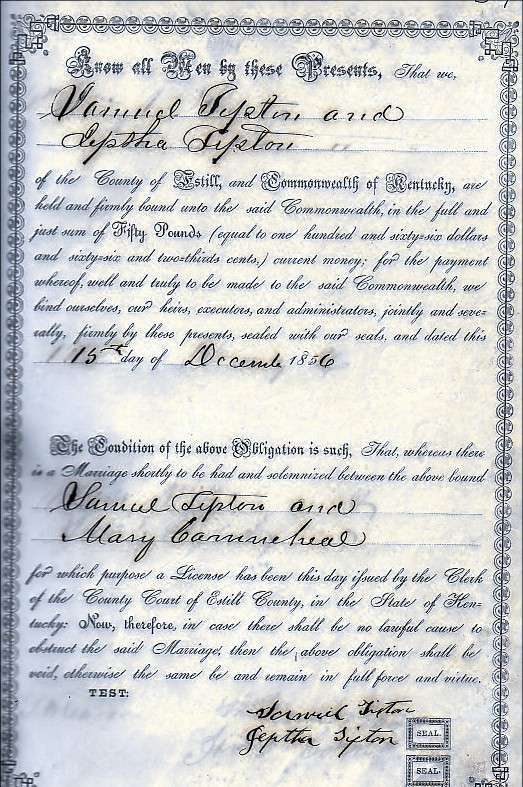 Know all Men by these Presents, That we,
Samuel Tipton and
Jeptha Tipton
of the County of Estill, and Commonwealth of Kentucky, are
held and firmly bound unto the said Commonwealth, in the full and
just sum of Fifty Pounds (equal to one hundred and sixty-six dollars
and sixty-six and two-thirds cents,) current money; for the payment
whereof, well and truly to be made to the said Commonwealth, we
bind ourselves, our heirs, executors, and administrators, jointly and seve-
rally, firmly by these presents, sealed with our seals, and dated this
15th day of Decembe 1856
The Condition of the above Obligation is such, That, whereas there
is a Marriage shortly to be had and solemnized between the above bound
Samuel Tipton and
Mary
for which purpose a License has been this day issued by the Clerk
of the County Court of Estill County, in the State of Ken-
tucky: Now, therefore, in case there shall be no lawful cause to
obstruct the said Marriage, then the above obligation shall be
void, otherwise the same be and remain in full force and virtue.
TEST:
Samuel Tipton
Jeptha Tipton SEAL.
SEAL.